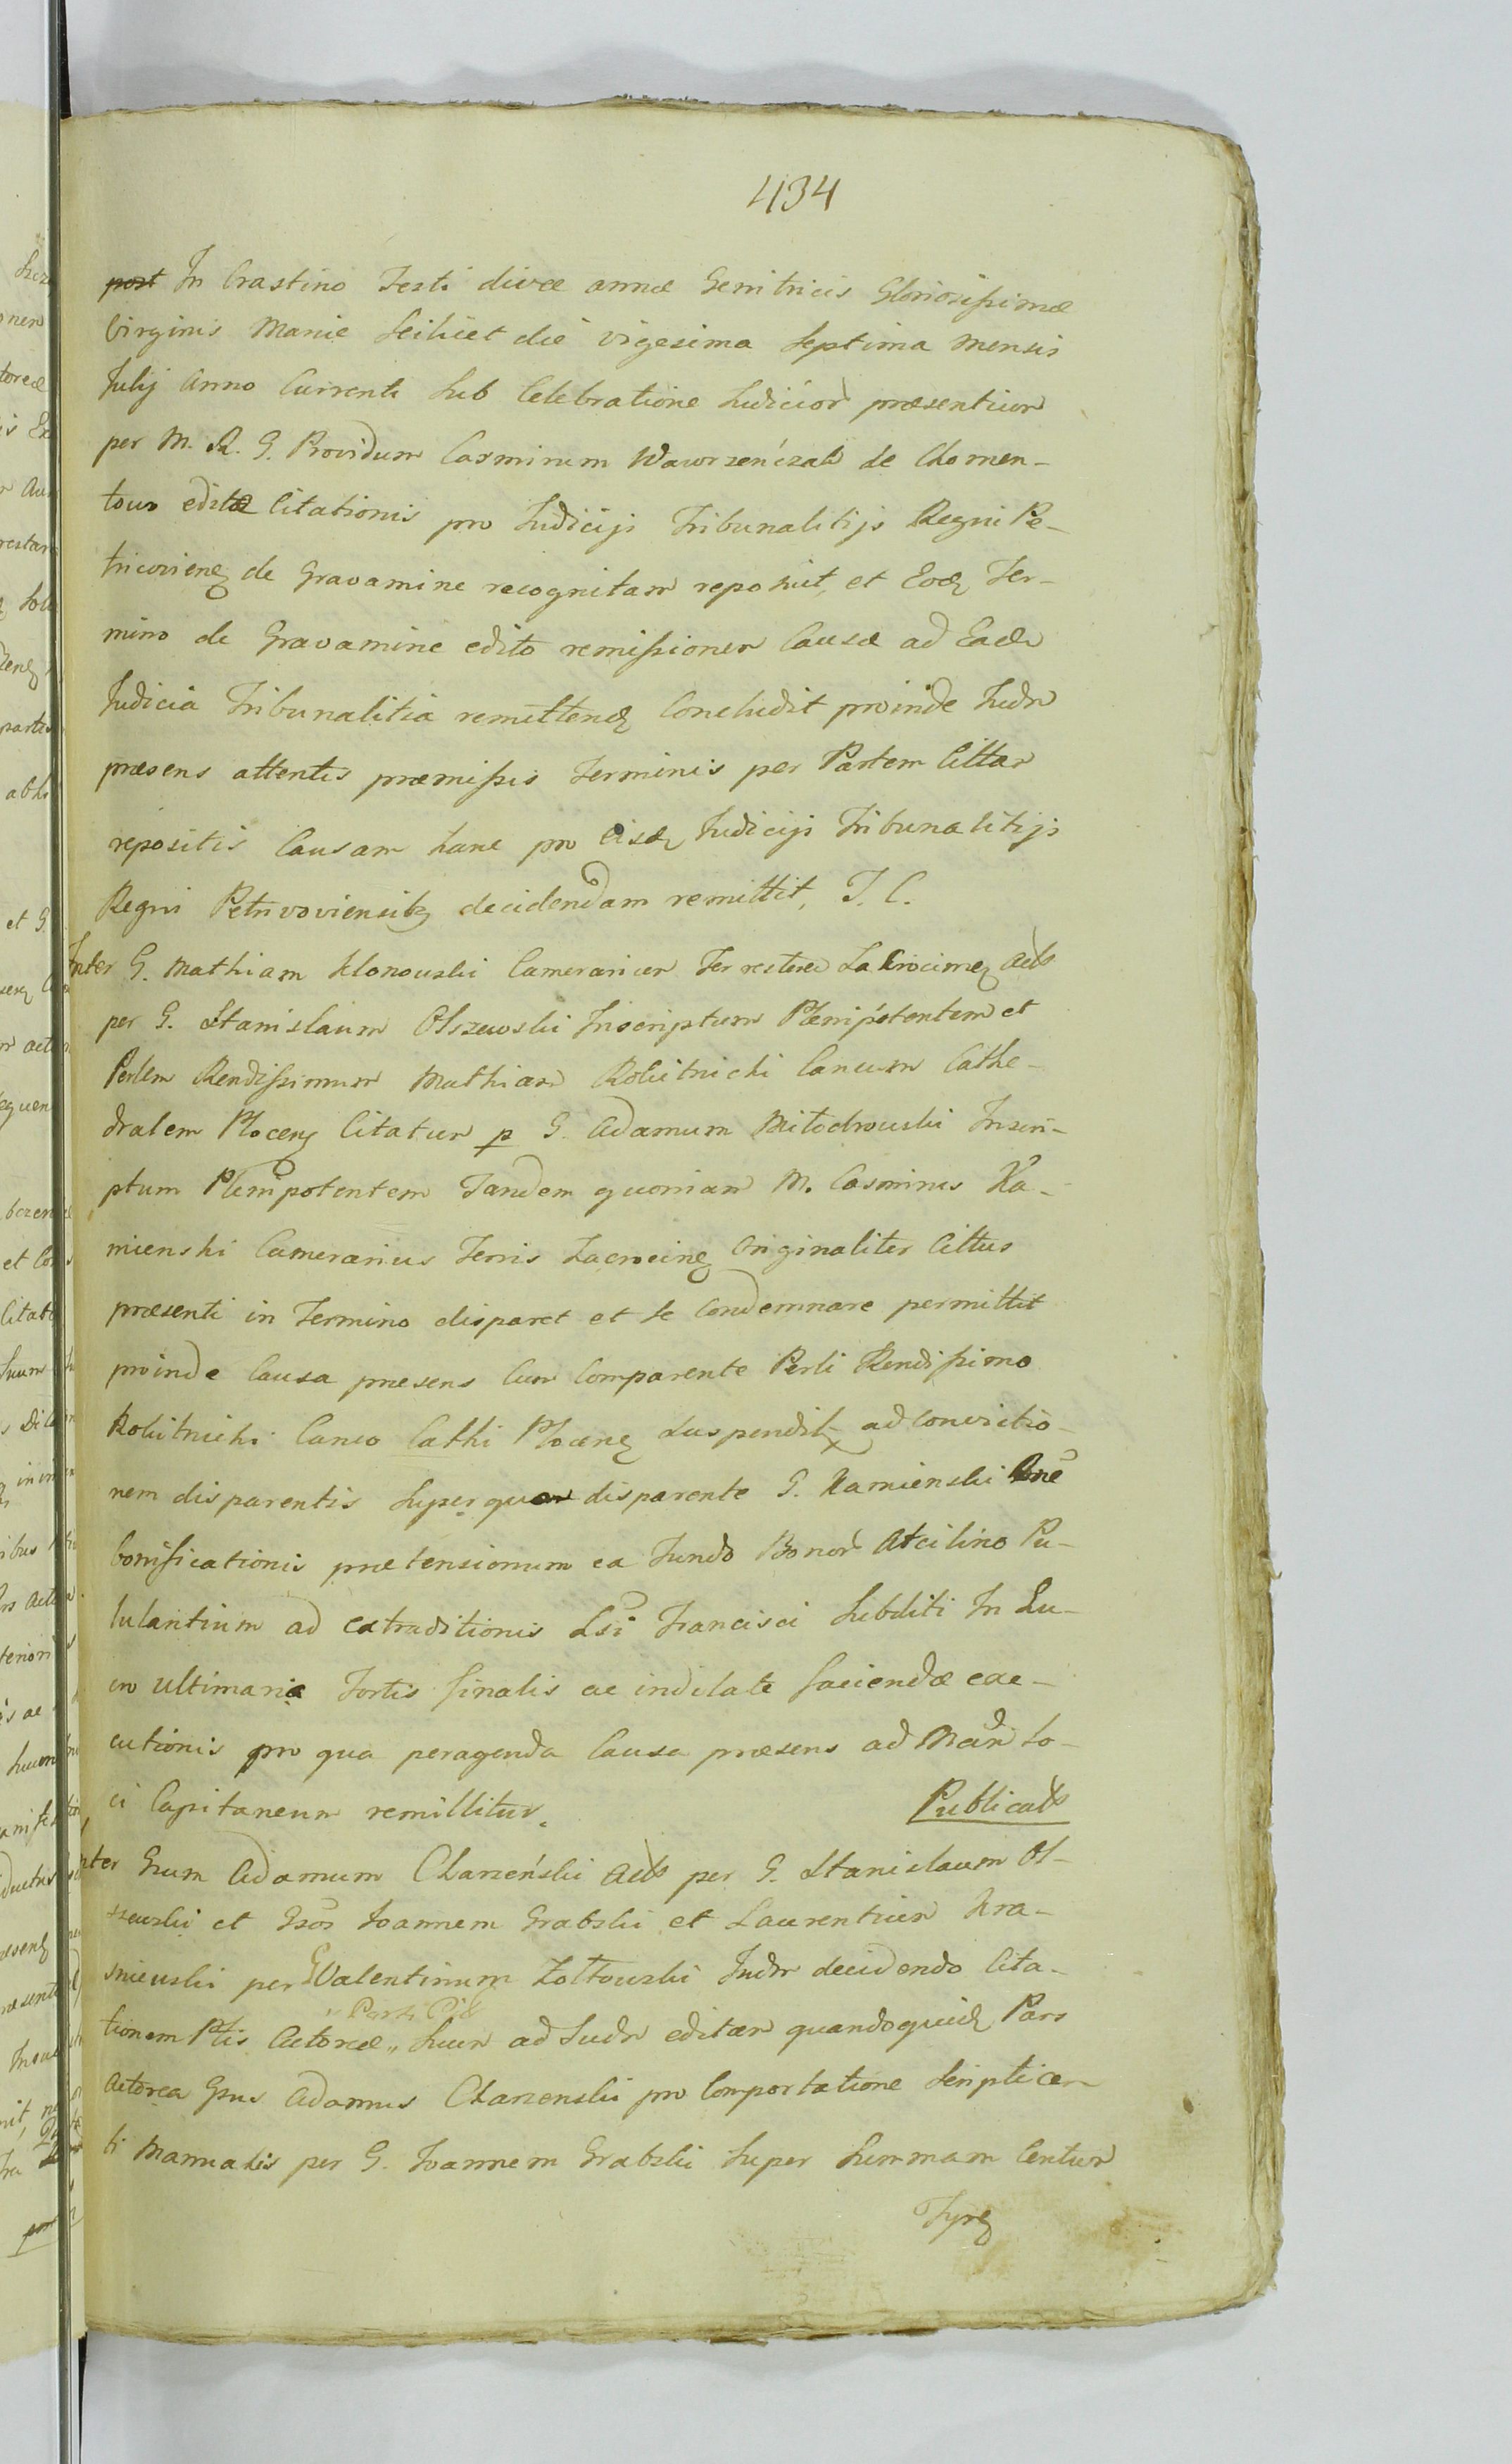 434
post In Crastino Festi divæ annæ Genitricis Gloriosissimæ
Virginis Mariæ Scilicet die vigesima Septima mensis
Julij Anno Currenti Sub Celebratione Judicior præsentium
per M. R. G. Providum Casmirum Wawrzenczak de Chomen-
towo editæ Citationis pro Judicijs Tribunalitijs Regni Pe-
tricovienȝ de Gravamine recognitam reposuit, et Eodȝ Ter-
mino de Gravamine edito remissionem Causæ ad Eadm
Judicia Tribunalitia remittendȝ Concludit proinde Judm
præsens attentis præmissis Terminis per Partem Cittam
repositis Causam hanc pro Eisdȝ Judicijs Tribunalitijs
Regni Petricoviensibȝ decidendam remittit, J. C.
Inter G. Mathiam Klonowski Camerarium Terrestrem Zakrocimeȝ Acts
per G. Stanislaum Olszewski Inscriptum Plenipotentem et
Perlem Rendissimum Mathiam Rokitnicki Cancum Cathe-
dralem Plocenȝ Citatum p G. Adamum Milodrowski Inscri-
ptum Plenipotentem Tandem quoniam M. Casmirus Ka-
mienski Camerarius Terris Zacrocinȝ Originaliter Cittus
præsenti in Termino disparet et se Condemnare permittit
proinde Causa præsens Cum Comparente Perli Rendissimo
Rokitnicki Canco Cathi Plocenȝ Suspendit ad Convictio-
nem disparentis Super quam disparente G. Kamienski One
bonificationis prætensionum ea Fundo Bonor Atcilino Pu-
lulantium ad extraditionis Lsi Francisci Subditi In Lu-
cro Ultimaria Fortis finalis ac indilate faciendæ exe-
cutionis pro qua peragenda Causa præsens ad Mam Lo-
ci Capitaneum remittitur. Publicats
Inter Gsum Adamum Charzeński Acts per G. Stanislaum Ol-
szewski et Gsos Joannem Grabski et Laurentium Kra-
śniewski per G Valentinum Żołtowski Judm decidendo Cita-
tionem Ptis Actoreæ „ huum ad Judm editam quandoquidȝ Pars
Actorea Gsus Adamus Charzenski pro Comportatione Scripti cer-
ti Manualis per G. Joannem Grabski Super Summam Centum